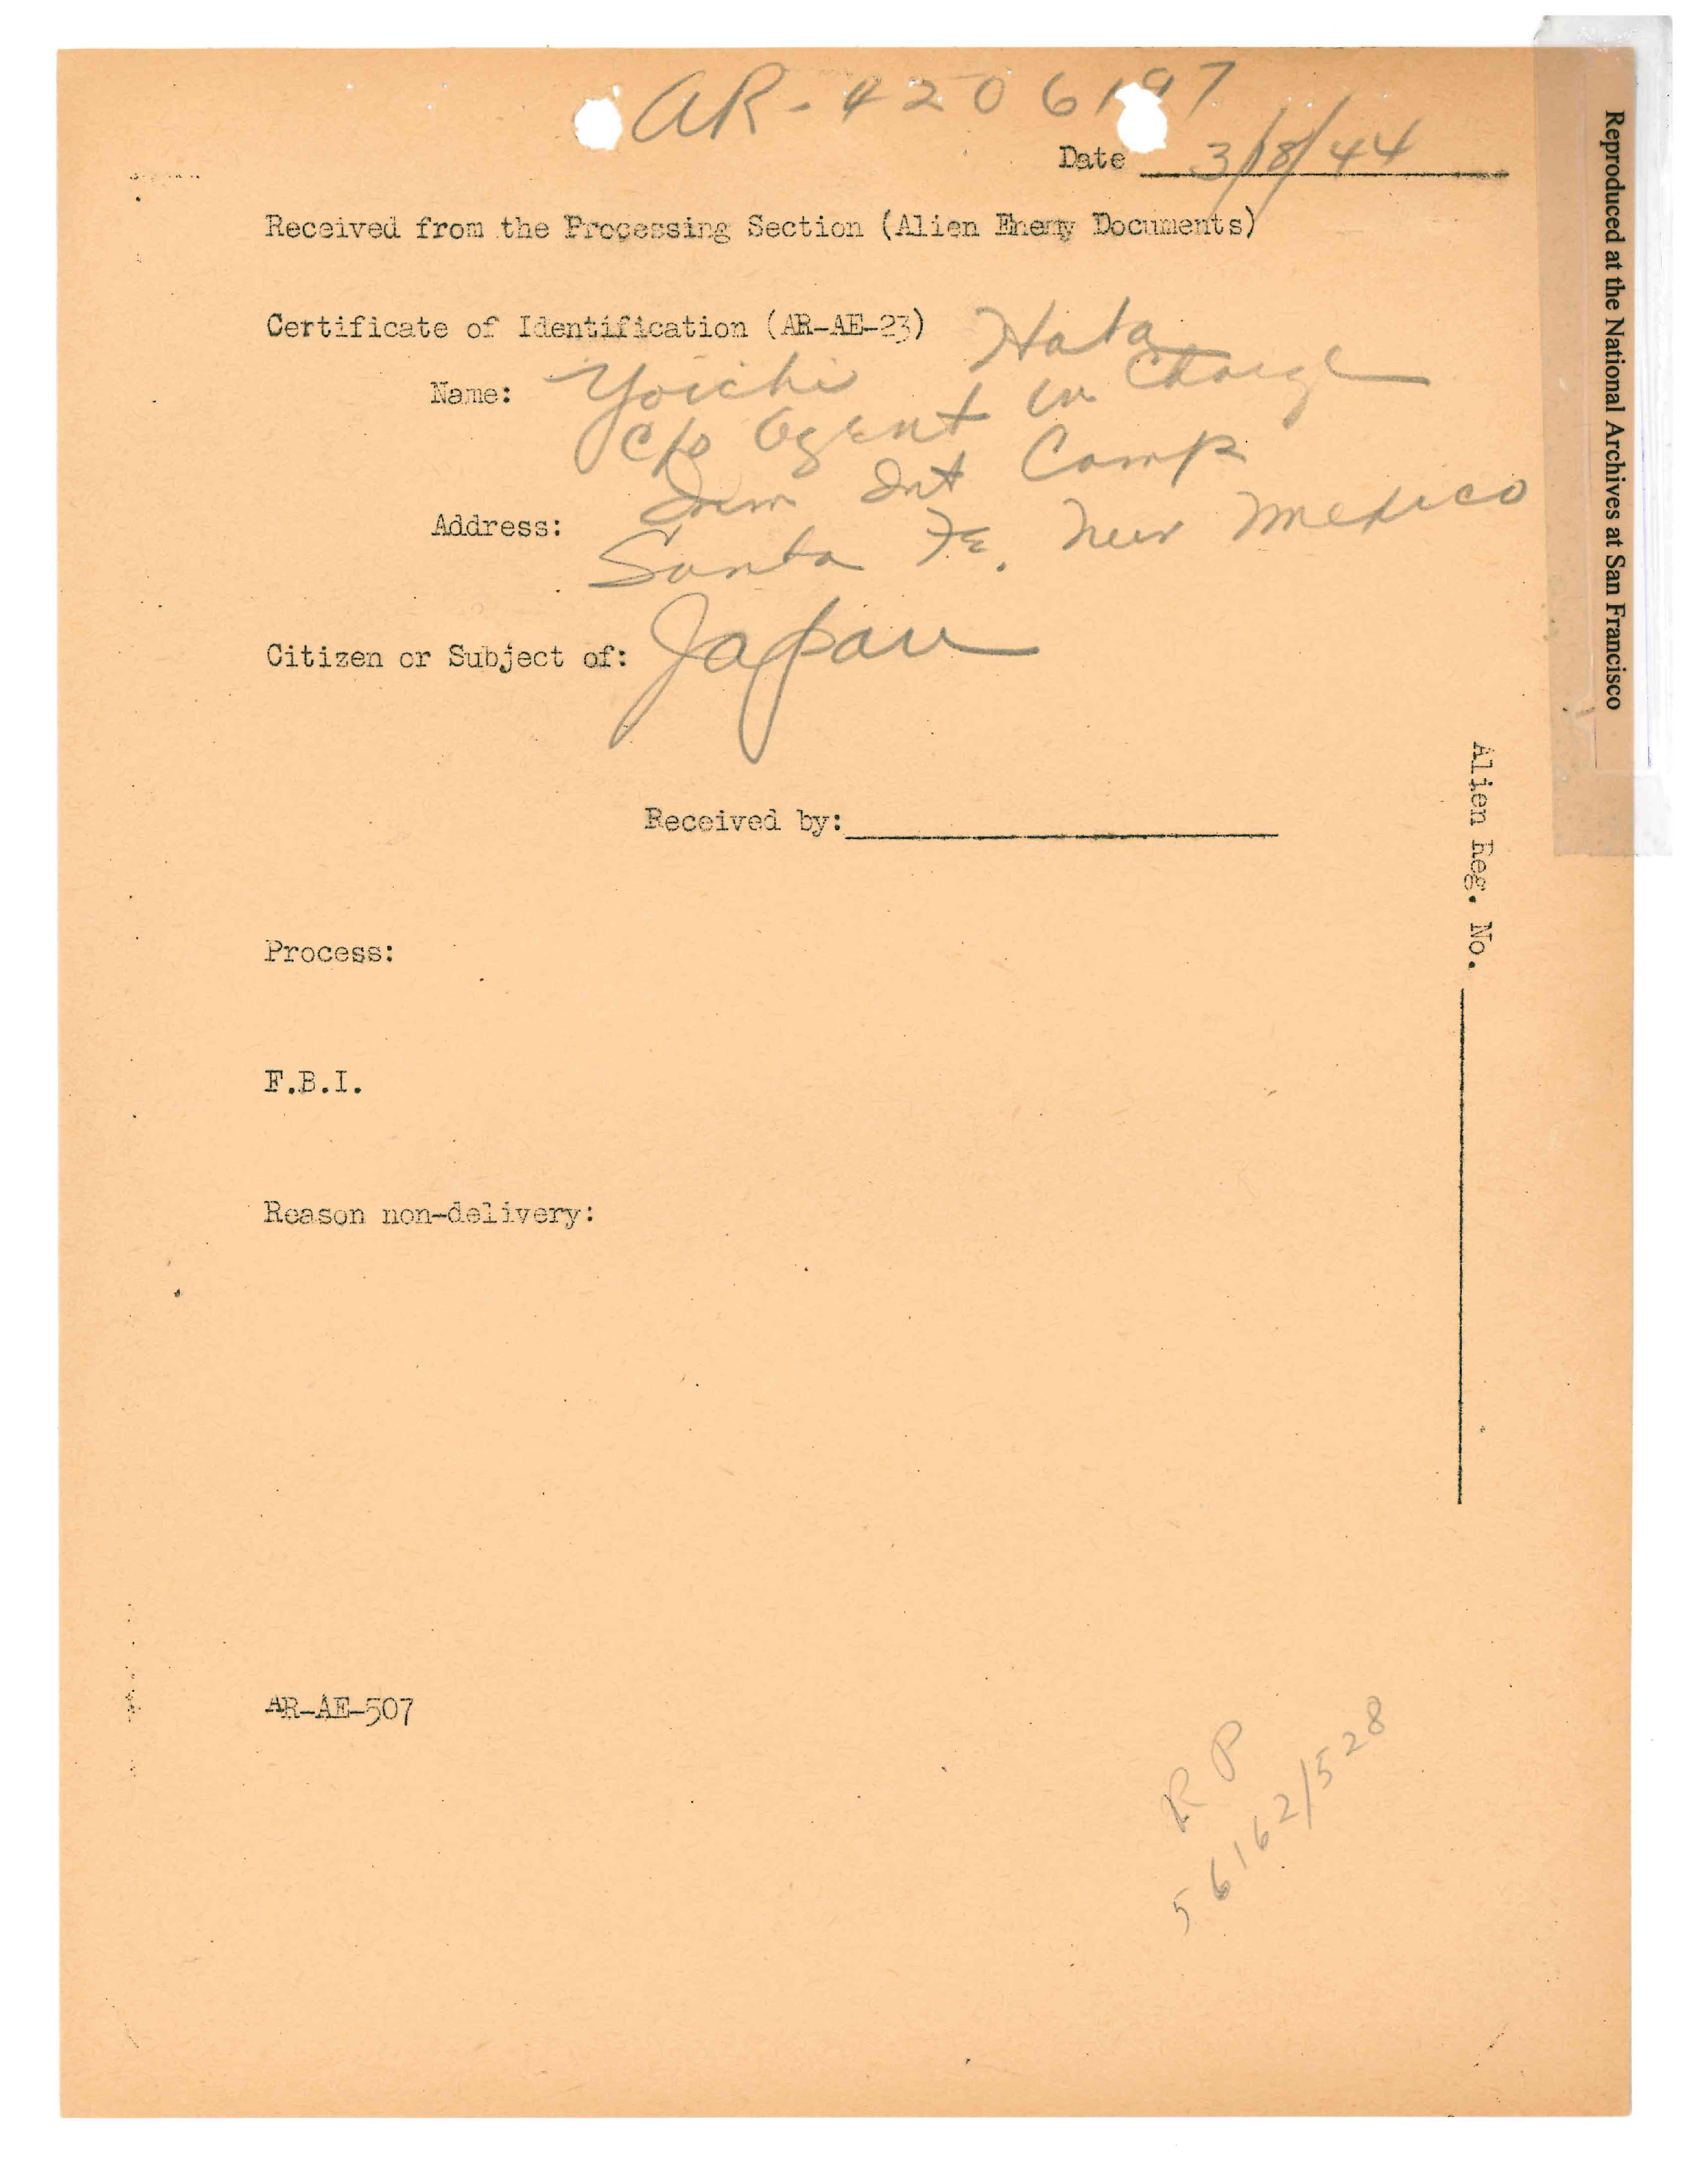 AR-4206197
Date 3/8/44
Received from the Processing Section (Alien Enemy Documents)
Certificate of Identification (AR-AE-23)
Name: Yoichi Hata
c/o Agent in Charge
Imm Int Camp
Address: Santa Fe, New Mexico
Citizen or Subject of: Japan
Received by:
Process:
F.B.I.
Reason non-delivery:
AR-AE-507
RP
56162/528
Alien Reg. No.
Reproduced at the National Archives at San Francisco